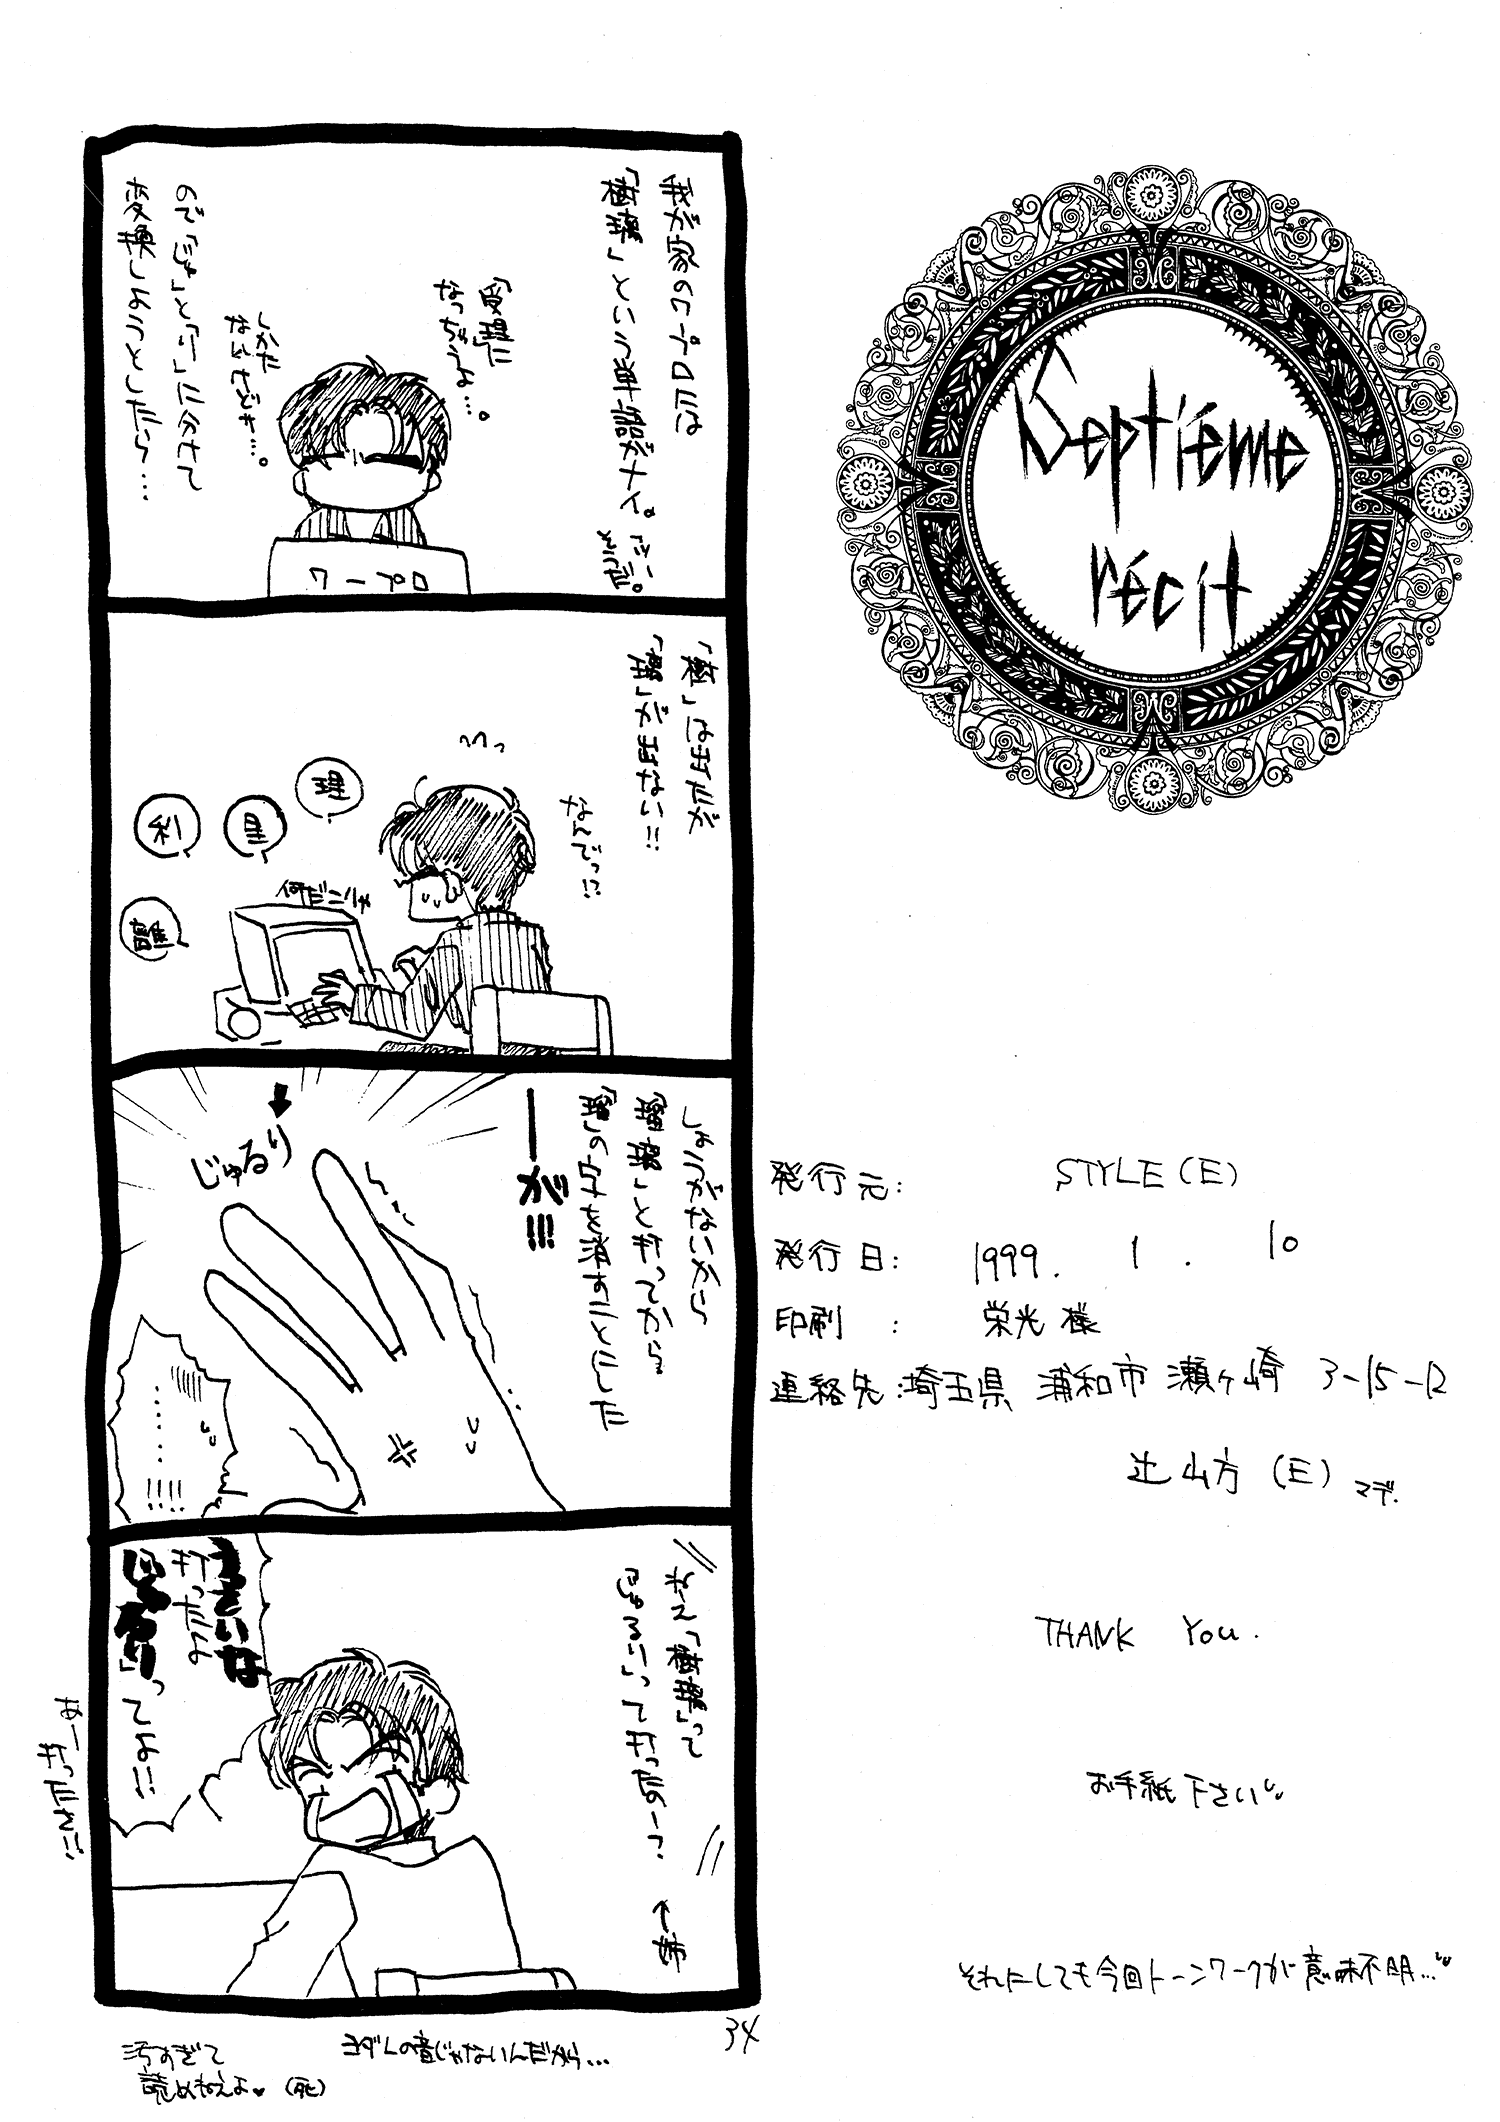 Septiéme
récit
我が家のワープロには
「樹璃」という単語がナイ。
そーとーだ。
「受理」に
なっちゃうよ…。
ワープロ
しかた
ないけどサ…。
ので「じゅ」と「り」に分けて
変換しようとしたら…
「樹」は出たが
「璃」が出ない!!
なんでっ!?
何だコリャ
理
里
利
離
しょうがないから
「瑠璃」と打ってから
「瑠」の字を消すことにした
―が!!!
じゅるり
……!!!!
ねえ「樹璃」って
「じゅるり」って打ったのー?
←姉
打ったよ
「じゅるり」ってよ!!
あー打ったさ!!
34
ヨダレの音じゃないんだから…
汚すぎて
読めねえよ♥(死)
発行元: STYLE(E)
発行日: 1999. 1. 10
印刷 : 栄光様
連絡先:埼玉県 浦和市 瀬ヶ崎 3-15-12
辻山方 (E) マデ.
THANK You.
お手紙下さい
それにしても今回トーンワークが意味不明…